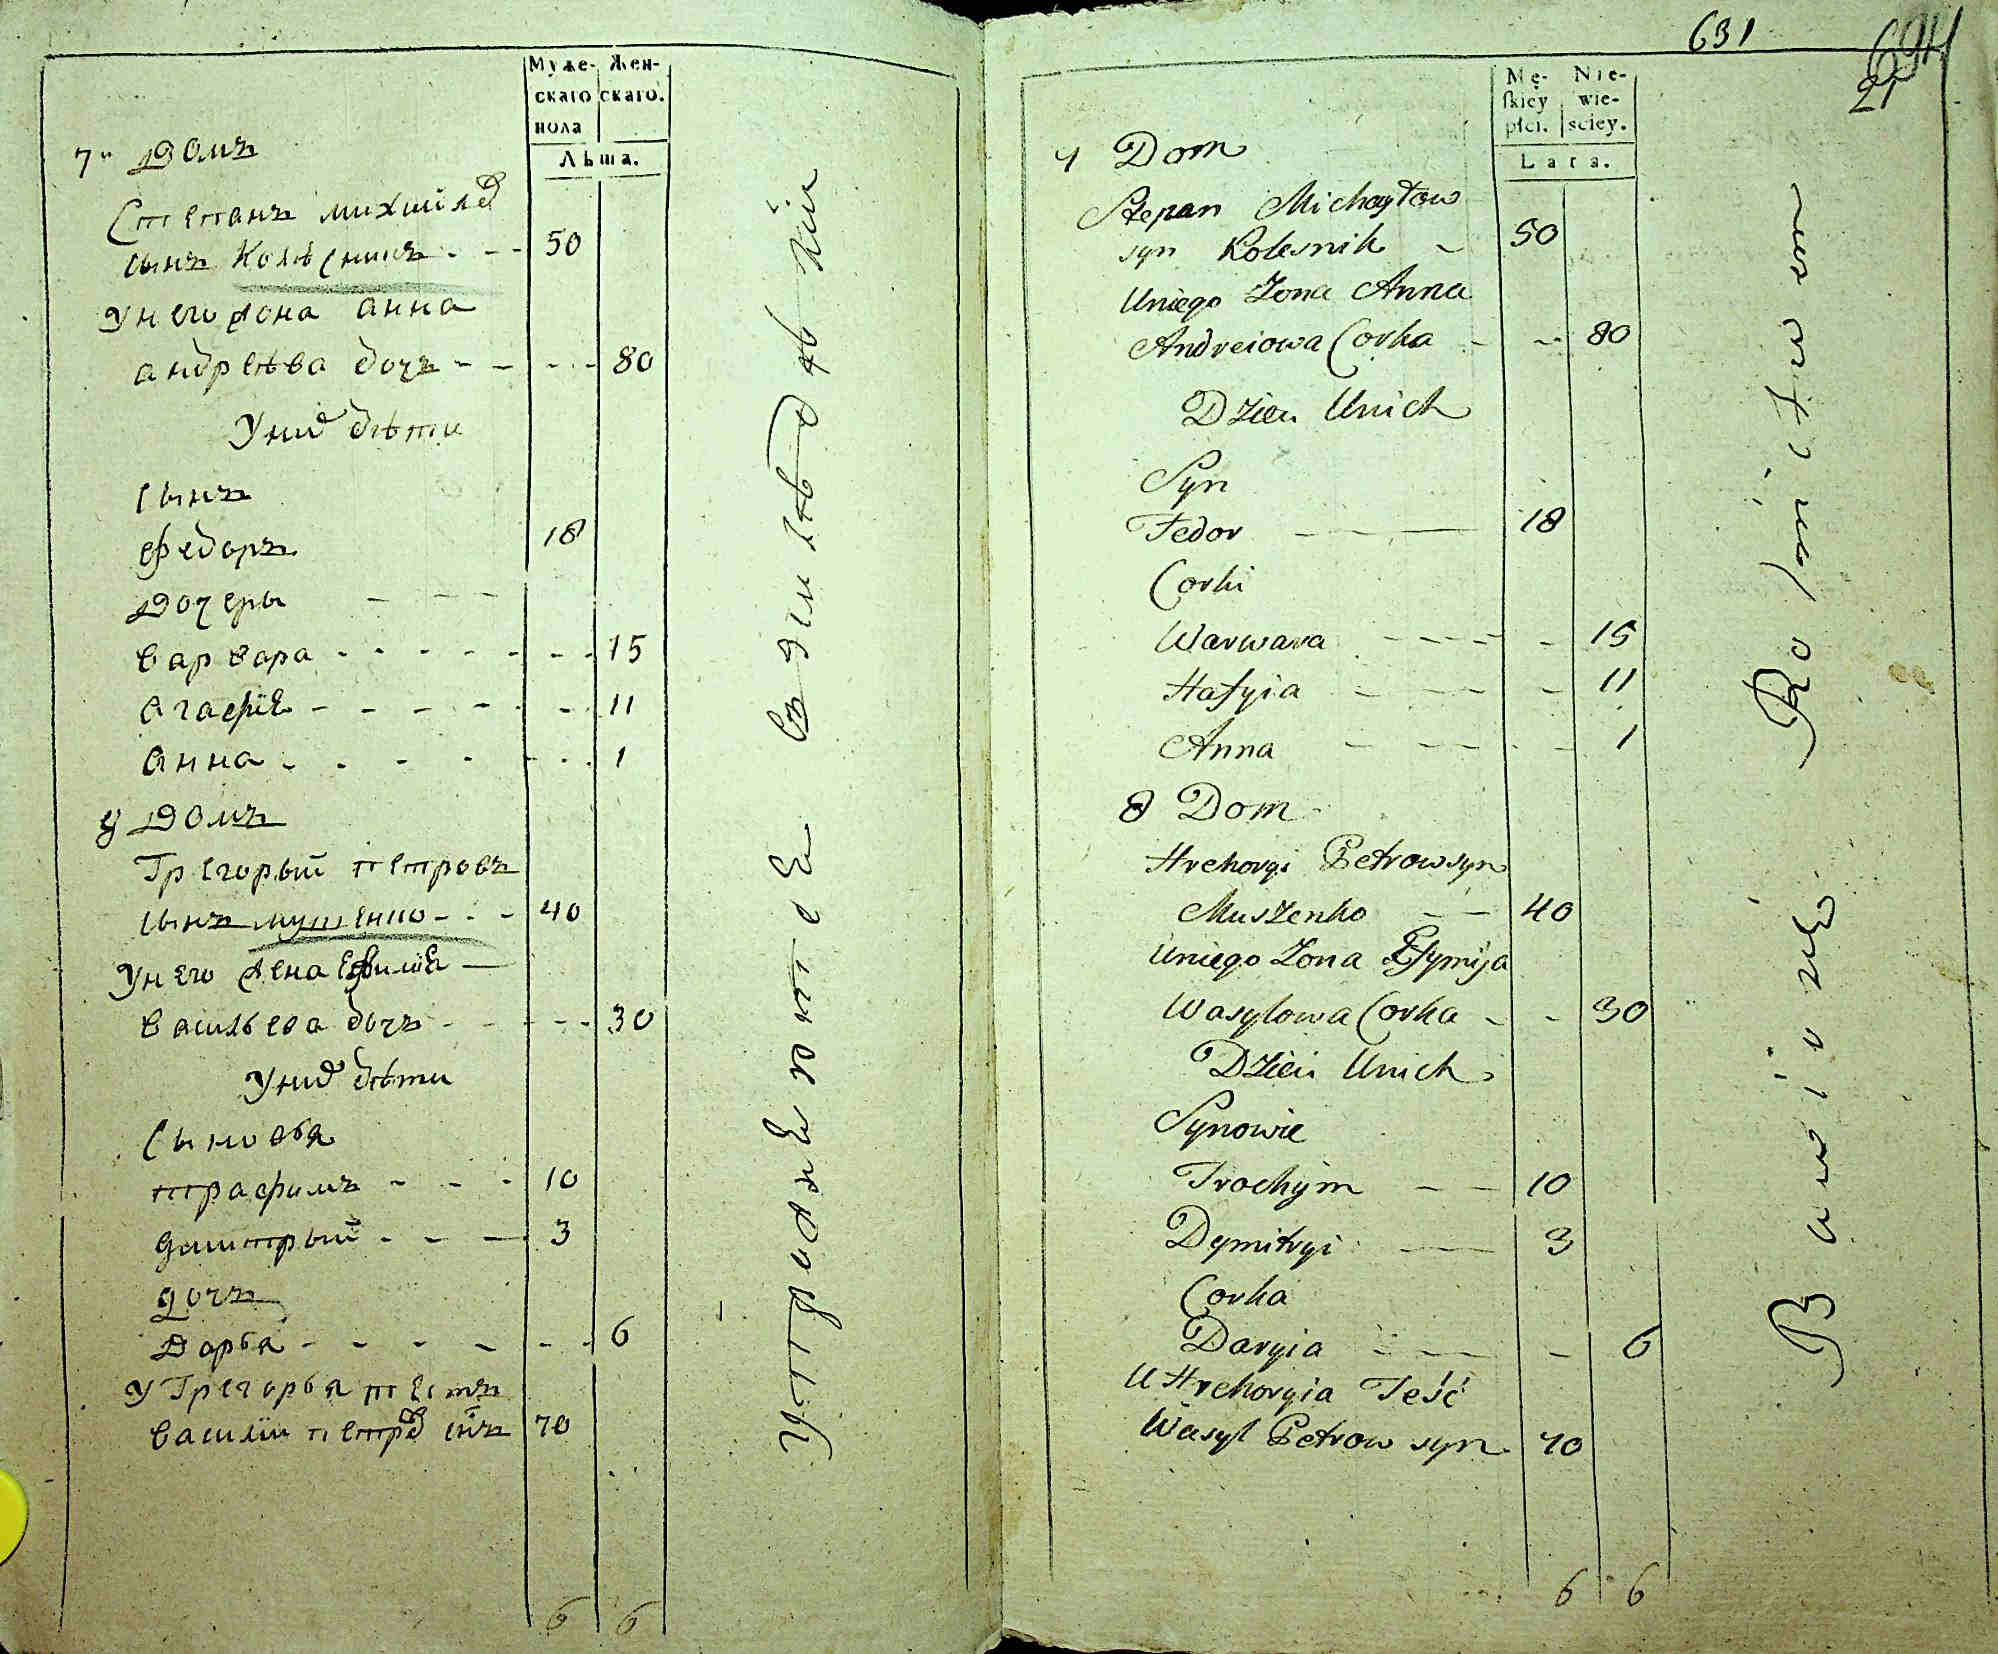 Муже-
скаго
пола
Жен-
скаго.
Лѣта.
7й Домъ
Степанъ михайло
сынъ Колѣсникъ - - - 50
У него жона анна
андрѣева дочъ - - - - - 80
У них дѣти
сынъ
федоръ 18
Дочеры - - -
варвара - - - - - - - 15
агафіѧ - - - - - - 11
анна - - - - - - - 1
8 Домъ
Грегорый петровъ
сынъ мушенко - - - 40
У него жена Ефиміѧ -
васильева дочъ - - - - - 30
У них дѣти
Сыновья
трафимъ - - - 10
Дмитрый - - - 3
дочъ
Дарья - - - - - - - 6
У Грегорья тесть
василій петров снъ 70
6 6
631
694
21
Mę-
skiey
płci.
Nie-
wie-
sciey.
Lata.
7 Dom
Stepan Michayłow
syn Kolesnik - 50
Uniego Zona Anna
Andreiowa Corka - - - 80
Dzieci Unich
Syn
Fedor - - - 18
Corki
Warwara - - - - - 15
Hafyia - - - - 11
Anna - - - - - 1
8 Dom
Hrehoryi Petrow syn
Muszenko - - 40
Uniego Zona Efymija
Wasylowa Corka - - 30
Dzieci Unich
Synowie
Trochym - - 10
Dymitryi - - 3
Corka
Daryia - - - - 6
U Hrehoryia Teść
Wasyl Petrow syn 70
6 6